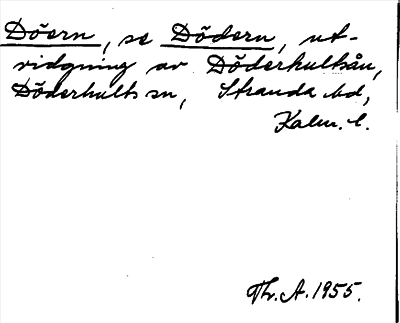 Döern, se Dödern, ut-
vidgning av Döderhultsån,
Döderhults sn, Stranda hd,
Kalm. l.
Th. A. 1955.